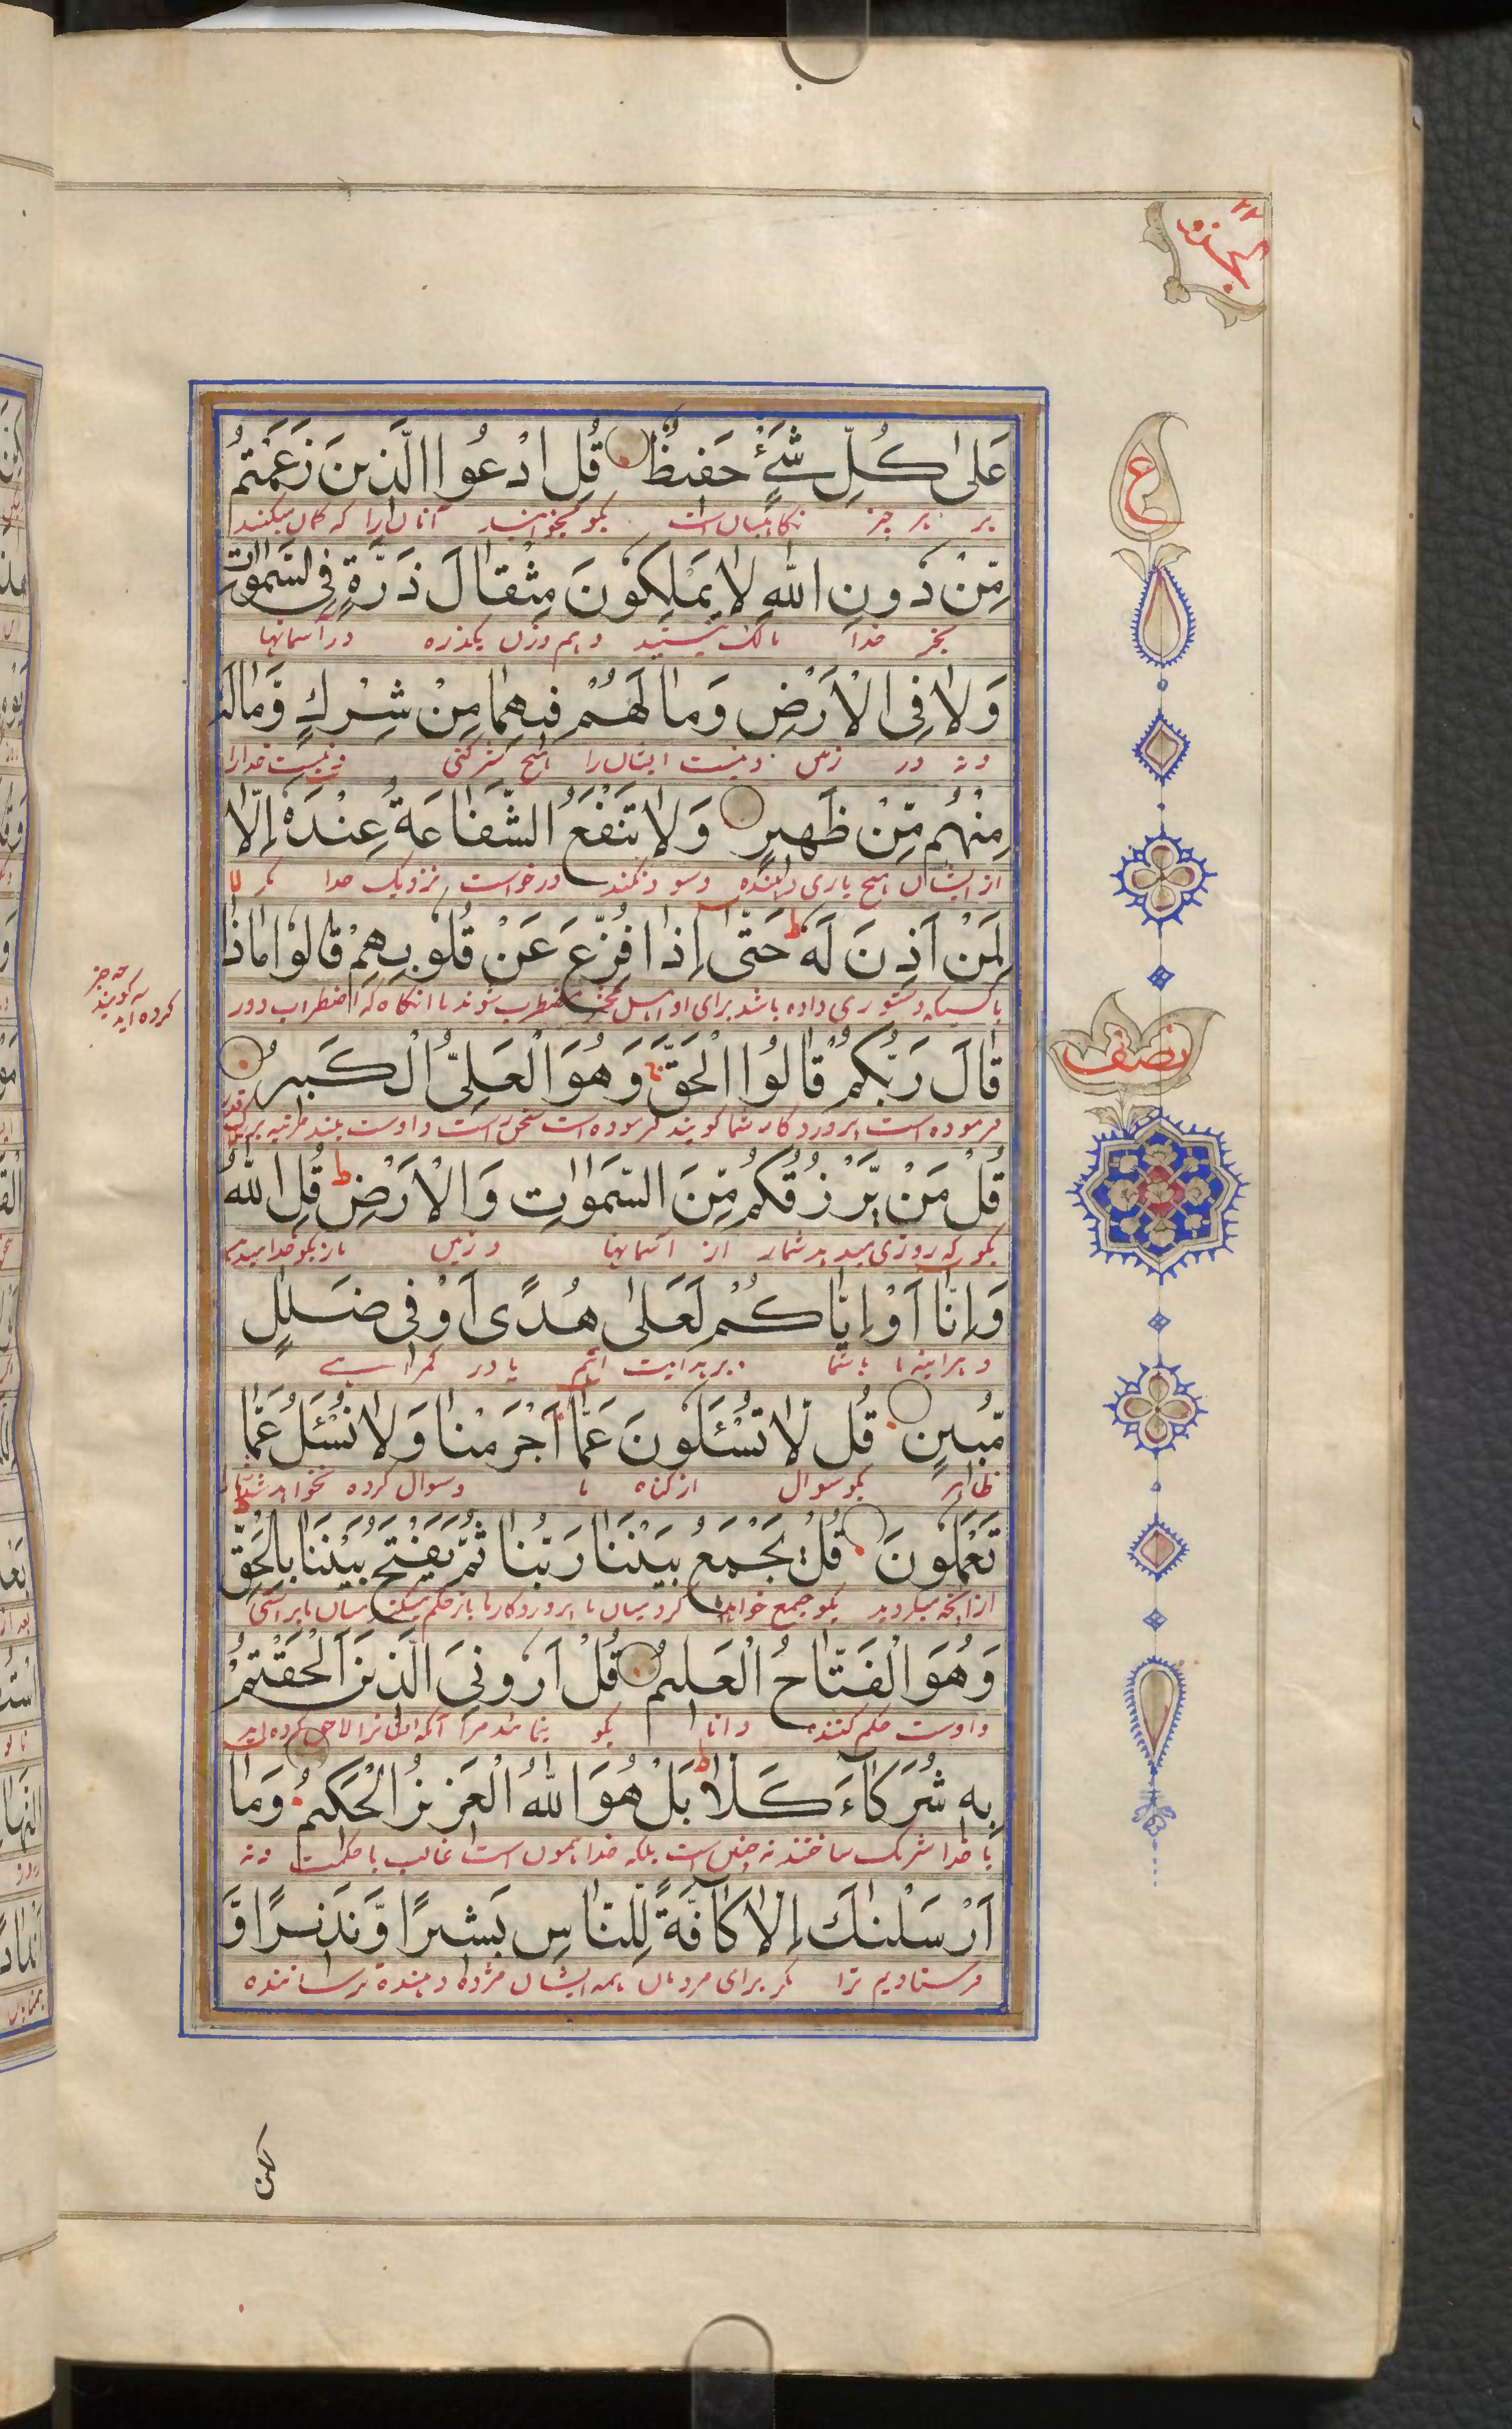 الجزو ٢٢
ع
عَلىٰ كُلِّ شَیْءٍ حَفیظٌ قُلِ ادْعُوا الَّذینَ زَعَمْتُمْ
بر هر چیز نگاهبان است بگو بخوانید آنان را که گمان میکنید
مِّنْ دُونِ اللّٰهِ لا یَمْلِكُونَ مِثْقالَ ذَرَّةٍ فِی السَّمٰوٰاتِ
بجز خدا مالک نیستند هم وزن یکذره در آسمانها
وَلا فِی الْاَرْضِ وَما لَهُمْ فیهِما مِنْ شِرْكٍ وَّمالَهُ
ونه در زمین ونیست ایشان را هیچ شرکتی ونیست خدارا
مِنْهُمْ مِّنْ ظَهیرٍ وَلا تَنْفَعُ الشَّفاعَةُ عِنْدَهٗ اِلّا
از ایشان هیچ یاری دهنده وسود نکند درخواست نزدیک خدا مگر
لِمَنْ اَذِنَ لَهٗ ط حَتّٰی اِذا فُزِّعَ عَنْ قُلُوبِهِمْ قالُوا ماذا
باکسیکه دستوری داده باشد برای او مضطرب شوند تا آنگاه که اضطراب دور
چه چیز
گویند
کرده اید
قالَ رَبُّكُمْ قالُوا الْحَقَّ ج وَهُوَ الْعَلِیُّ الْكَبیرُ
فرموده است پروردگار شما گویند فرموده است سخن راست و اوست بلند مرتبه بزرگ قدر
نصف
قُلْ مَنْ یَّرْزُقُكُمْ مِّنَ السَّمٰوٰاتِ وَالْاَرْضِ ط قُلِ اللّٰهُ
بگو که روزی میدهد شمار از آسمانها و زمین باز بگو خدا میدهد
وَاِنّا اَوْ اِیّاكُمْ لَعَلىٰ هُدًی اَوْ فی ضَلٰلٍ
و هراینه ما یا شما بر هدایت ایم یا در گمراهی
مُّبینٍ قُلْ لّا تُسْئَلُونَ عَمّا اَجْرَمْنا وَلا نُسْئَلُ عَمّا
ظاهر بگو سوال از گناه ما وسوال کرده نخواهد شد
تَعْمَلُونَ قُلْ یَجْمَعُ بَیْنَنا رَبُّنا ثُمَّ یَفْتَحُ بَیْنَنا بِالْحَقِّ ط
از آنچه میکردید بگو جمع خواهد کرد میان ما پروردگار ما باز حکم میکند میان ما براستی
وَهُوَ الْفَتّاحُ الْعَلیمُ قُلْ اَرُونِیَ الَّذینَ اَلْحَقْتُمْ
و اوست حکم کننده دانا بگو بنمائید مرا آنکه ایشانرا لاحق کرده اید
بِهٖ شُرَكاءَ كَلّا ط بَلْ هُوَ اللّٰهُ الْعَزیزُ الْحَكیمُ وَما
با خدا شریک ساختند نه چنین است بلکه خدا همون است غالب باحکمت ونه
اَرْسَلْنٰكَ اِلّا كآفَّةً لِّلنّاسِ بَشیرًا وَّنَذیرًا وَّ
فرستادیم ترا مگر برای مردمان همه ایشان مژده دهنده ترساننده
لكن